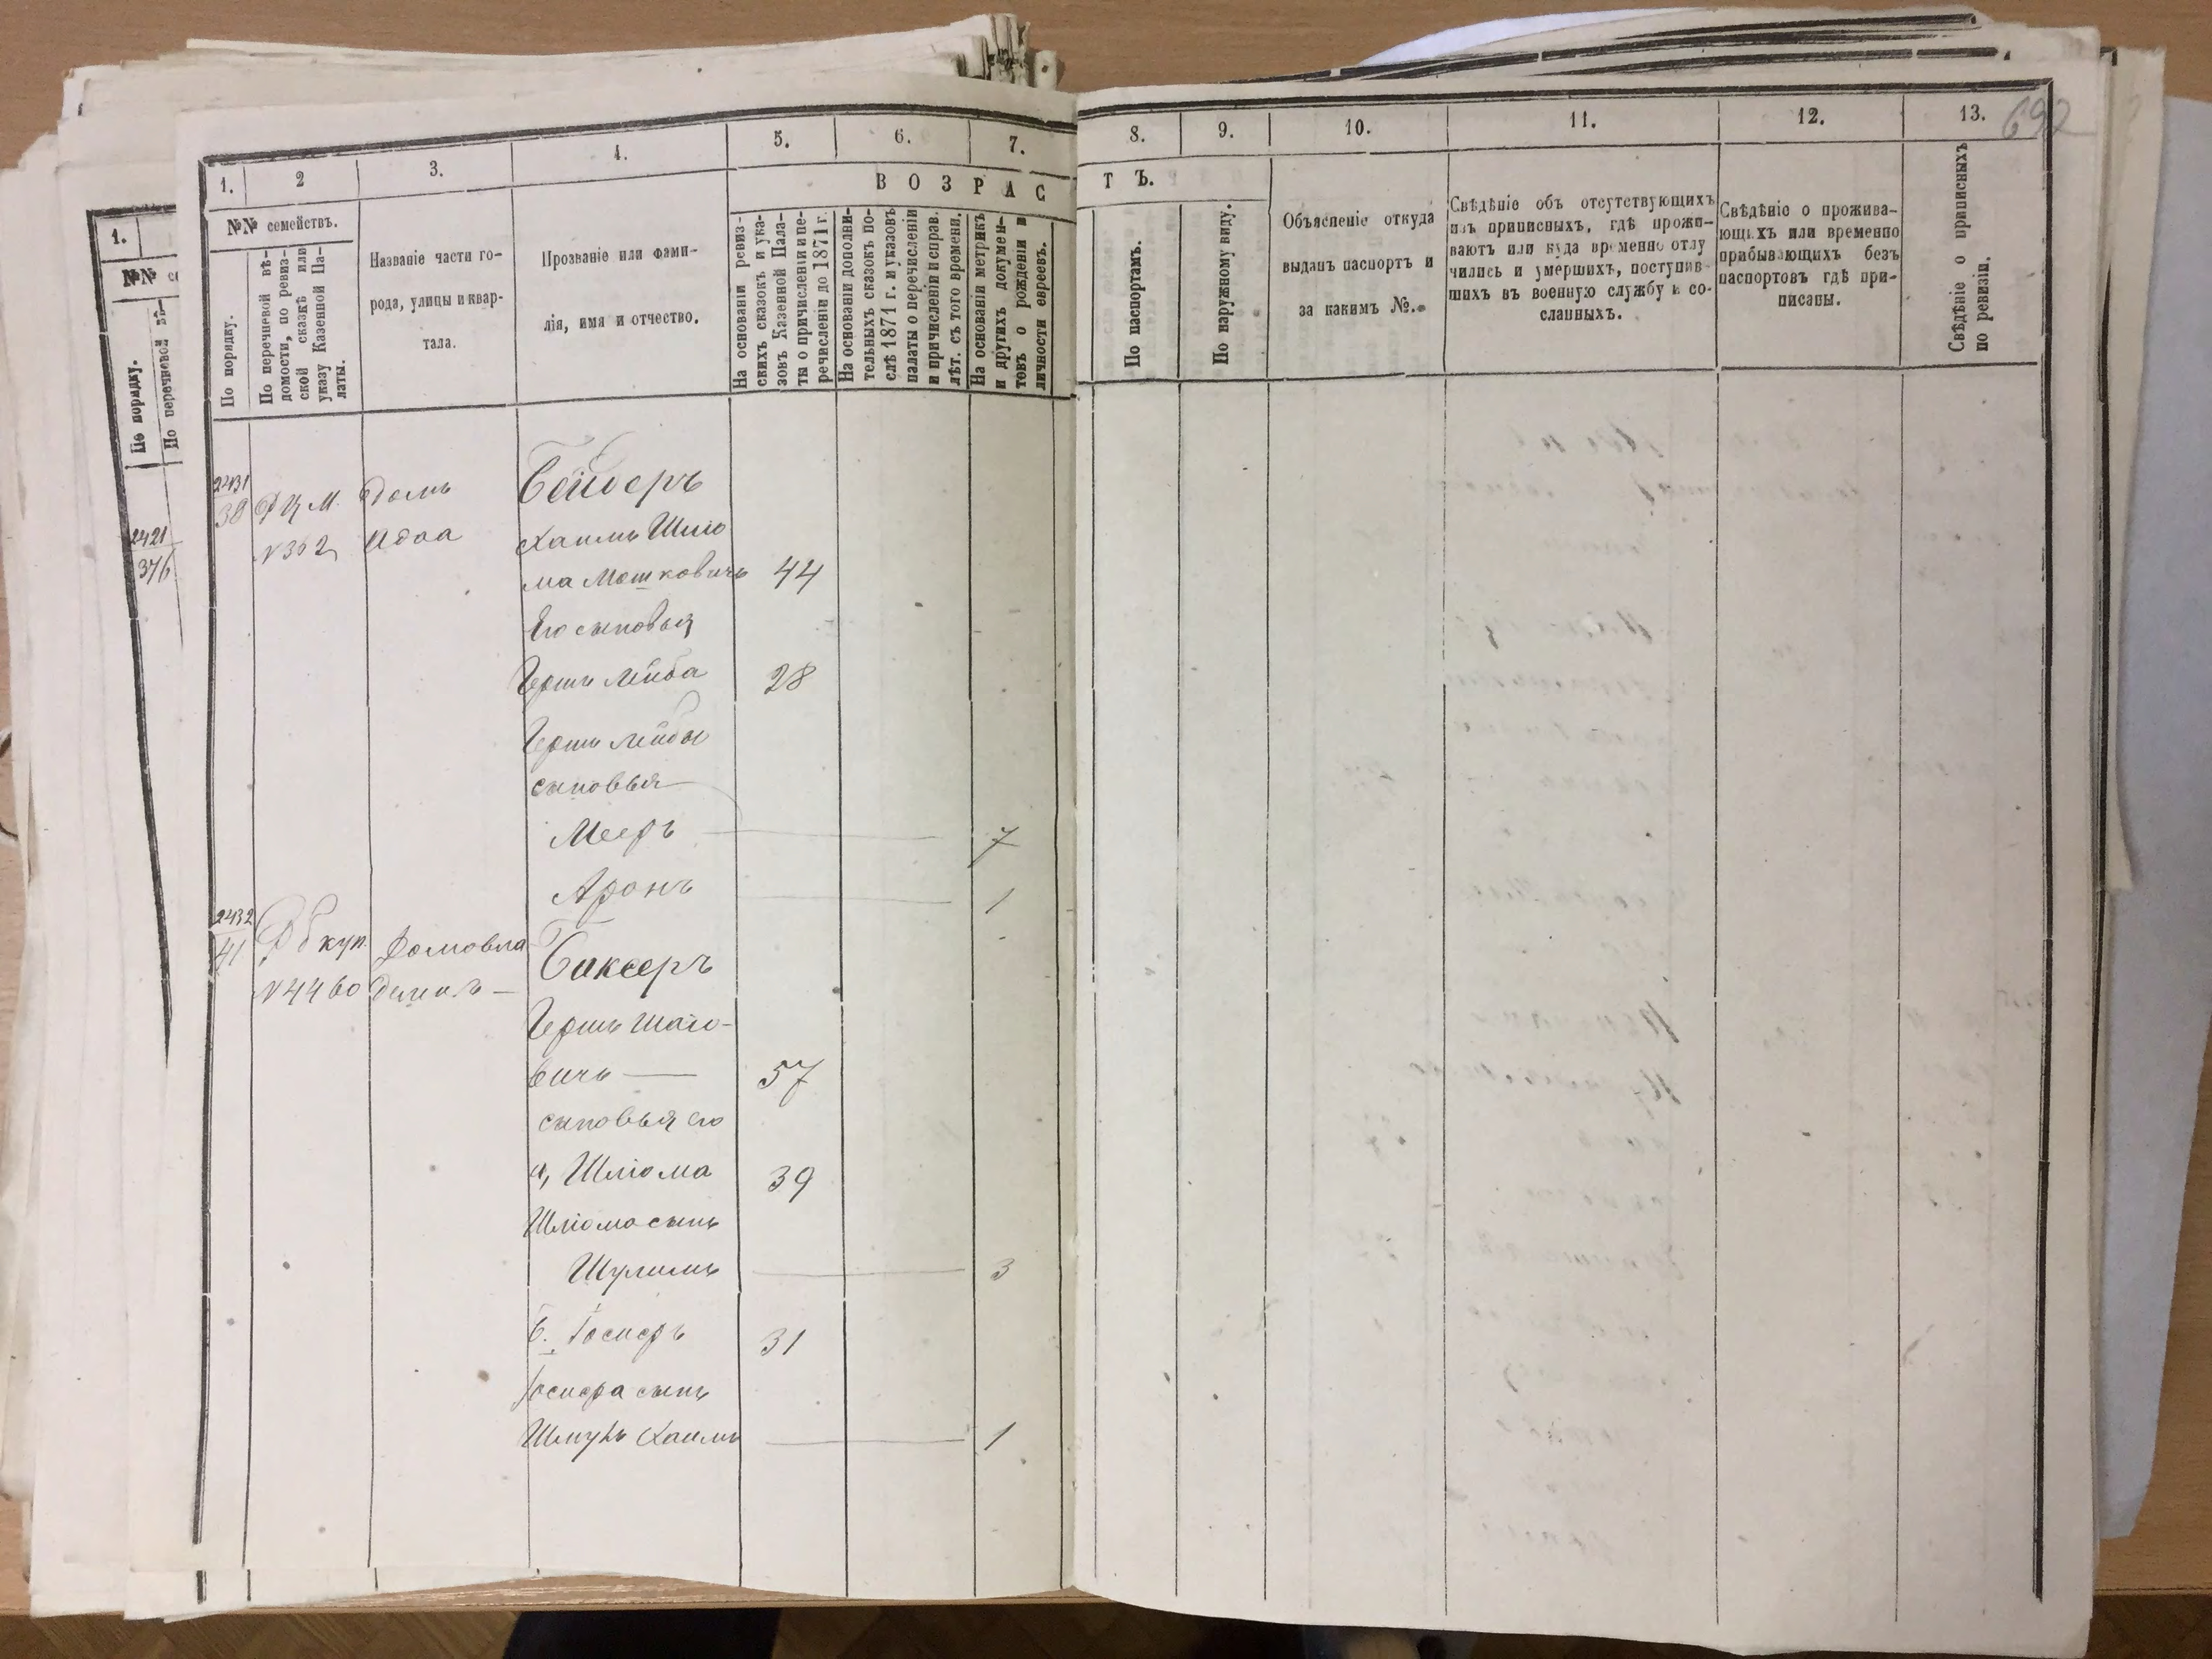 1.
№№ се
По порядку.
По перечневой вѣ-
2421
376
1.
2
3.
4.
5.
6.
7.
8.
9.
10.
11.
12.
13.
692
ВОЗРАС
ТЪ.
№№ семействъ.
По порядку.
По перечневой вѣ-
домости, по ревиз-
ской сказкѣ или
указу Казенной Па-
латы.
Названіе части го-
рода, улицы и квар-
тала.
Прозваніе или фами-
лія, имя и отчество.
На основаніи ревиз-
скихъ сказокъ и ука-
зовъ Казенной Пала-
ты о причисленіи и пе-
речисленіи до 1871 г.
На основаніи дополни-
тельныхъ сказокъ по-
слѣ 1871 г. и указовъ
палаты о перечисленіи
и причисленіи и исправ.
лѣт. съ того времени.
На основаніи метрикъ
и другихъ докумен-
товъ о рожденіи и
личности евреевъ.
По паспортамъ.
По наружному виду.
Объясненіе откуда
выданъ паспортъ и
за какимъ №.
Свѣдѣніе объ отсутствующихъ
изъ приписныхъ, гдѣ прожи-
ваютъ или куда временно отлу
чились и умершихъ, поступив-
шихъ въ военную службу и со-
сланныхъ.
Свѣдѣніе о прожива-
ющихъ или временно
прибывающихъ безъ
паспортовъ гдѣ при-
писаны.
Свѣдѣніе о приписныхъ
по ревизіи.
2431
38
М. домъ
№302
Хаимъ Шліо
ма Мошковичь 44
Его сыновья
Гершъ Лейба 28
Герша Лейбы
сыновья
Мееръ 7
Аронъ 1
2432
41 куп.
№4460
Баксеръ
Гершъ Шаіо-
вичь 57
сыновья его
а, Шліома 39
Шліома сынъ
Шулимъ 3
б. Іосифъ 31
Іосифа сынъ
Шмуль Хаимъ 1